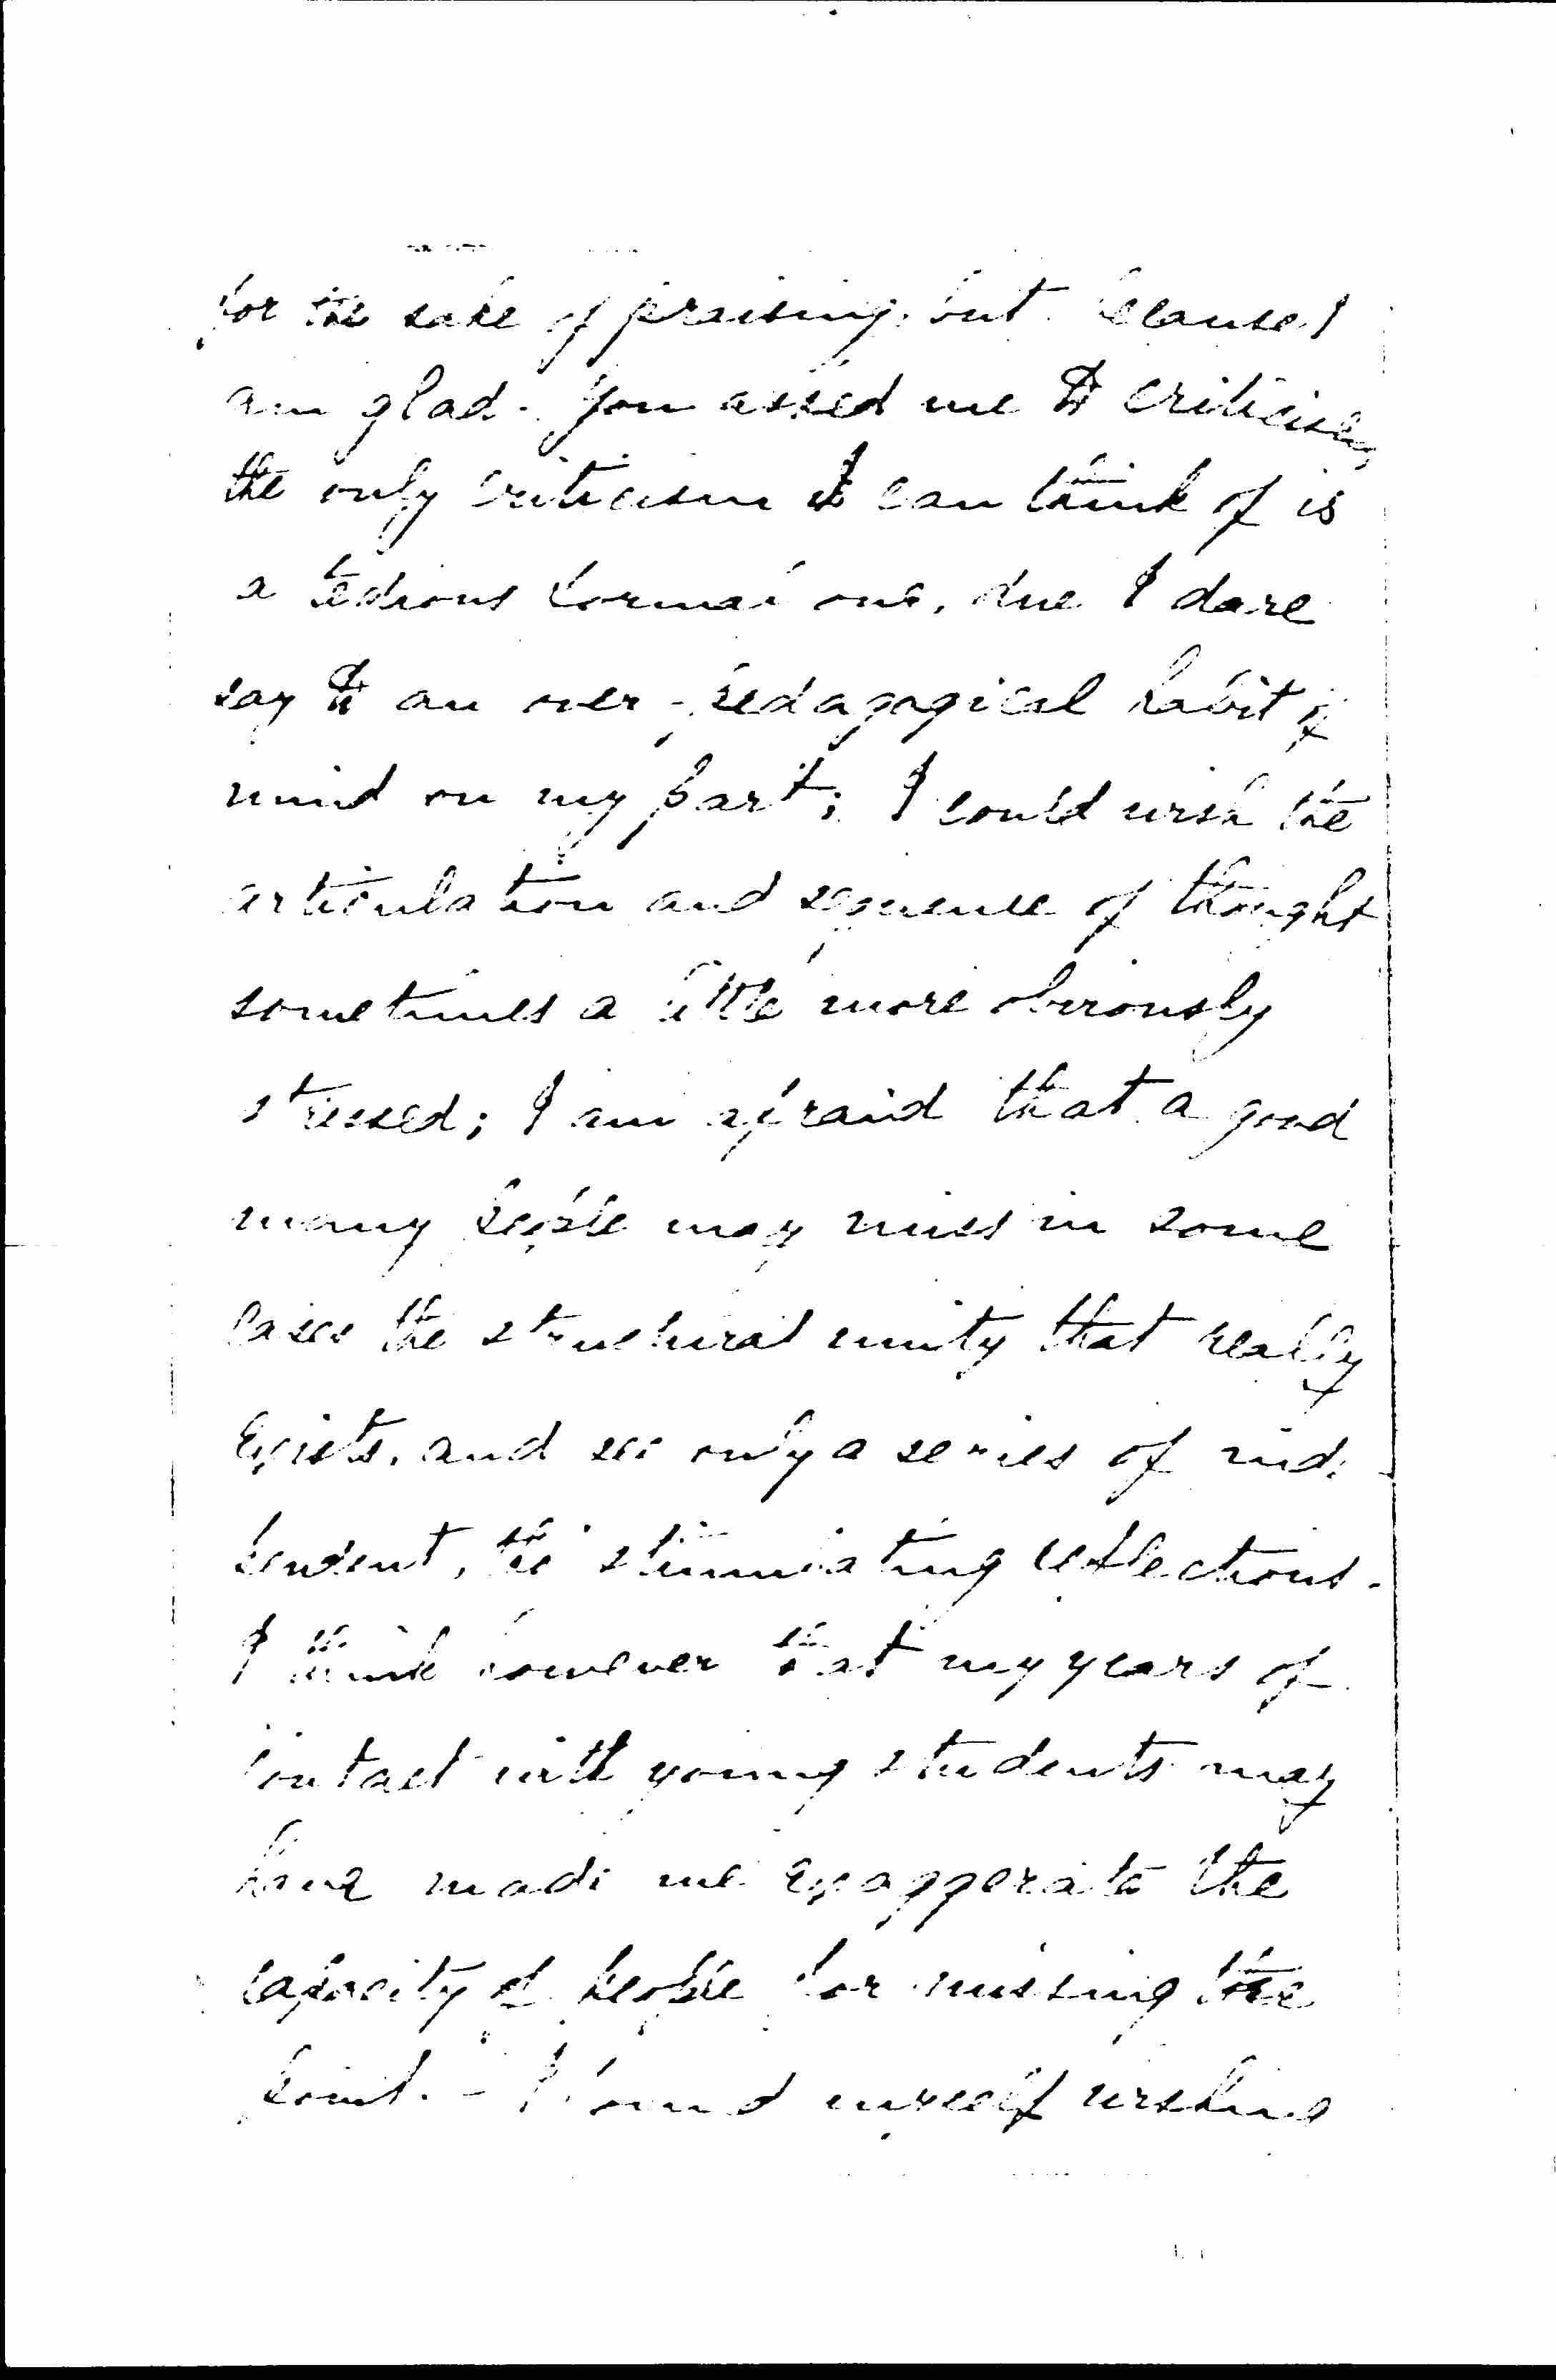 for the sake of praising, but because I
am glad. You asked me to criticise,
the only criticism I can think of is
a tedious formal one, due I dare
say to an over-pedagogical habit of
mind on my part; I could wish the
articulation and sequence of thought
sometimes a little more obviously
stressed; I am afraid that a good
many people may miss in some
cases the structural unity that really
exists, and see only a series of inde-
pendent, tho' stimulating reflections.
I think however that my years of
contact with young students may
have made me exaggerate the
capacity of people for missing the
point. - I found myself wishing